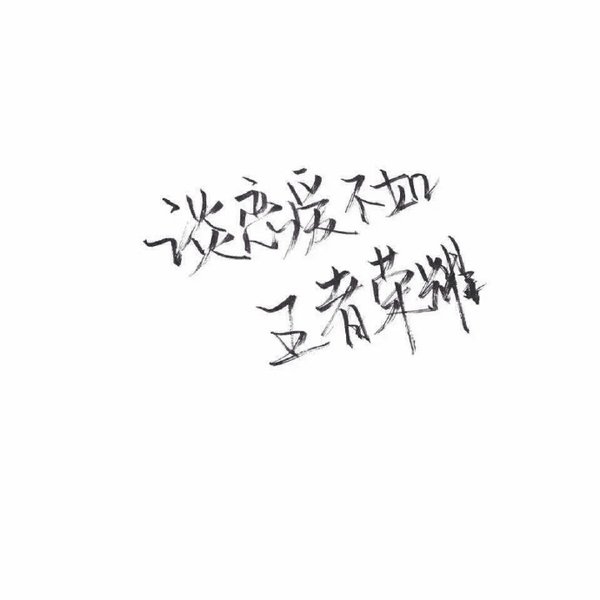 谈恋爱不如
王者荣耀